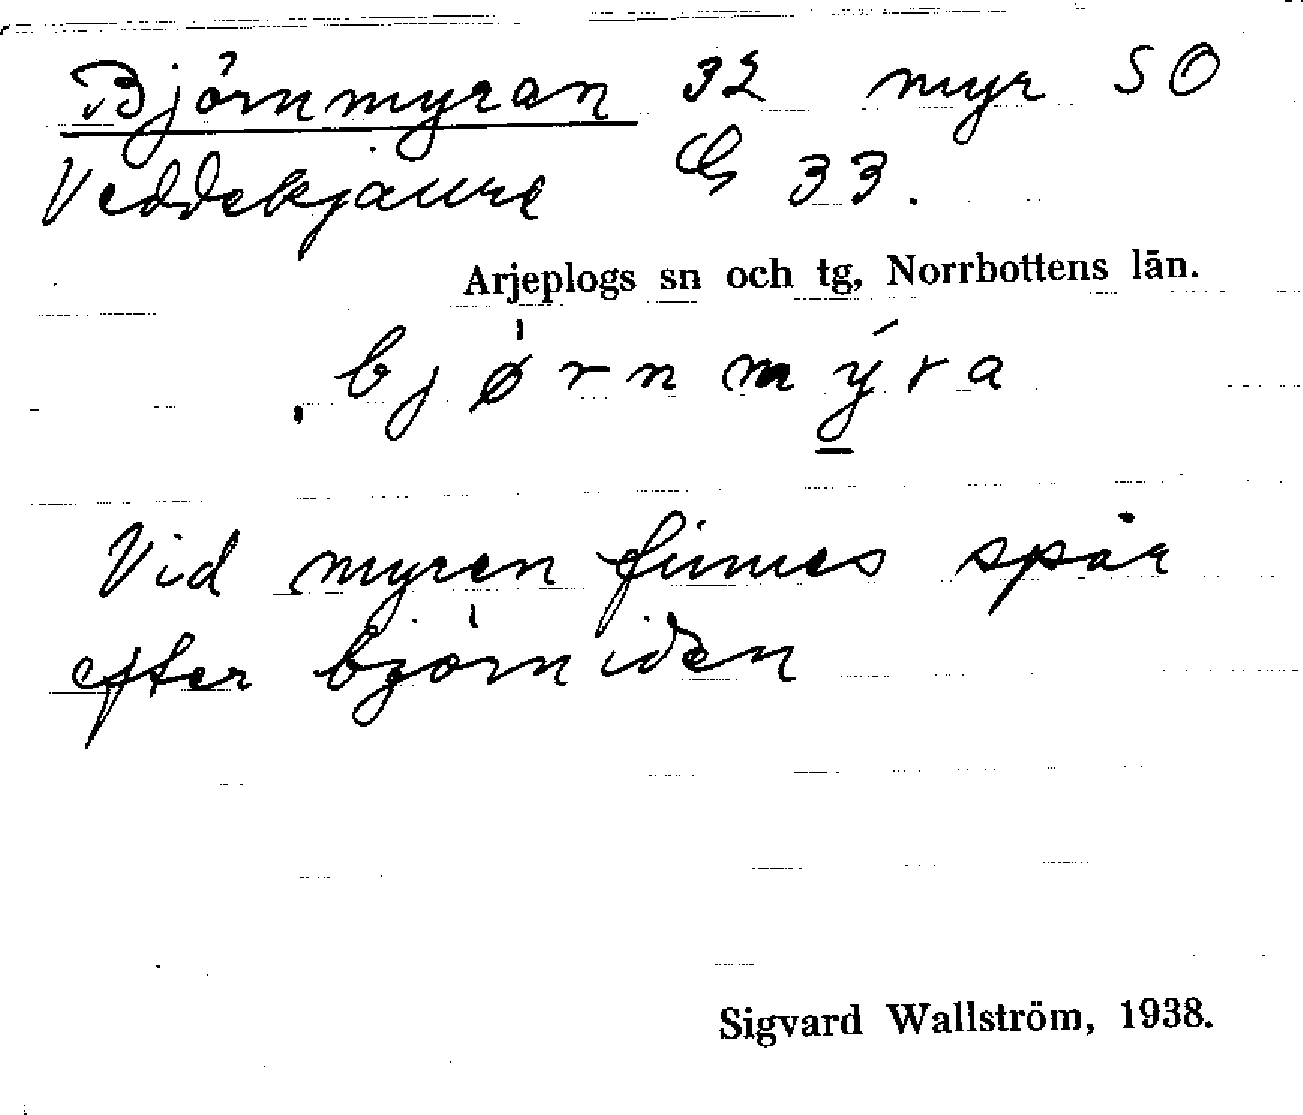 Björnmyran 32 myr SO
Veddekjaure G 33.
Arjeplogs sn och tg, Norrbottens län.
bjørnmýra
Vid myren finnes spår
efter björniden
Sigvard Wallström, 1938.